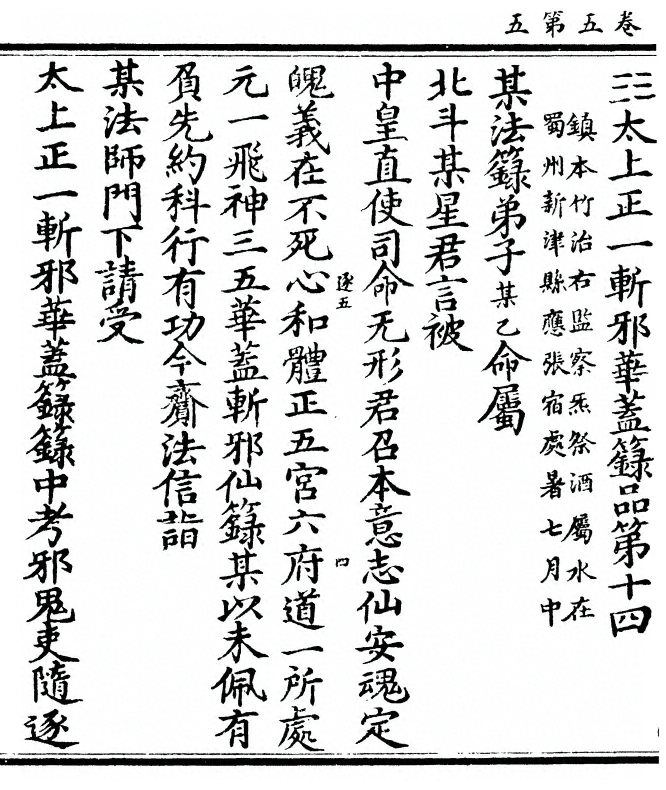 卷五第五
三三太上正一斬邪華蓋籙品第十四
鎮本竹治右監察炁祭酒屬水在
蜀州新津縣應張宿處暑七月中
某法籙弟子某乙命屬
北斗某星君言被
中皇直使司命无形君召本意志仙安魂定
魄義在不死心和體正五宮六府道一所處
逐五
四
元一飛神三五華蓋斬邪仙籙某以未佩有
負先約科行有功今齎法信詣
某法師門下請受
太上正一斬邪華蓋籙籙中考邪鬼吏隨逐